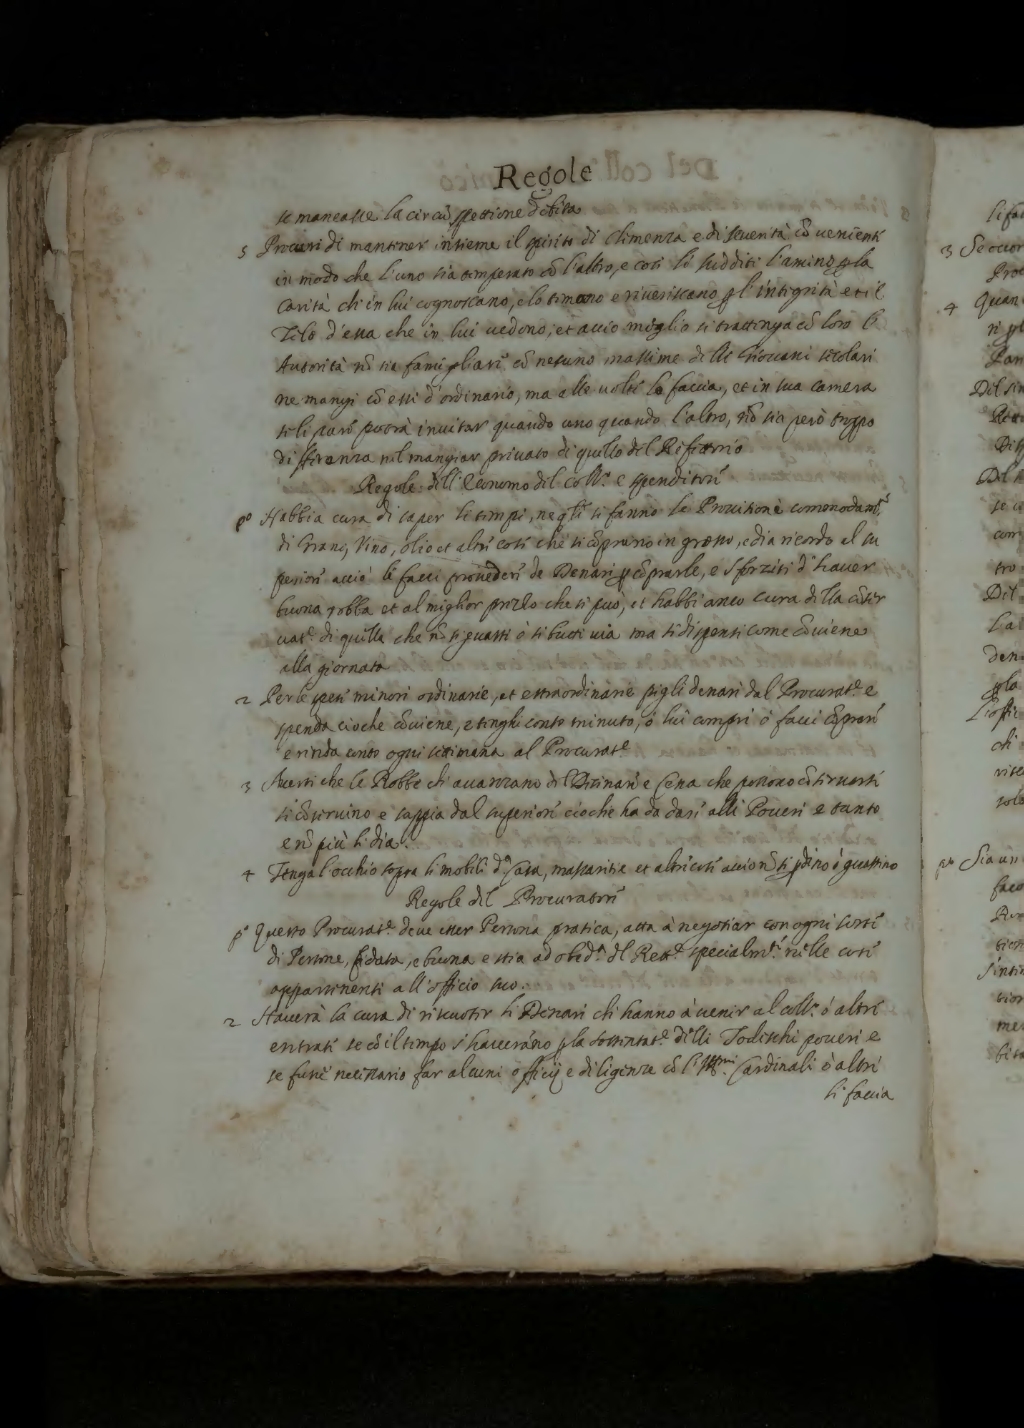 Regole
se mancasse la circũspettione debita
5 Procuri di mantener insieme il spirito di Clemenza e di severità cõ uenienti
in modo che l'uno sia temperato cõ l'altro, e così li sudditi l'amino p la
Carità ch in lui cognoscano, e lo timano e riueriscano p l'intigrità et il
Zelo d'essa che in lui uedono, et accio meglio si trattenga cõ loro l'
Autorità nõ sia famigliari cõ nesuno massime delli Giouani secolari
ne mangi cõ essi d'ordinario, ma alle uolte lo faccia, et in sua camera
se li pare potrà inuitar quando uno quando l'altro, nõ sia però troppo
differenza nel mangiar priuato di quello del Rifettorio
Regole dell'Economo del Coll.º e spenditori
pº Habbia cura di saper li tempi, negli si fanno le Prouisioni comonodam.
di Grano, Vino, olio et altri cosi che si cõprano in grosso, e dia ricordo al su
periori acciò le facci prouederi de Denari p cõprarle, e sforzisi d'hauer
buona robba et al miglior prezzo che si può, et habbi anco cura della cõser
uat.e di quella che nõ si guasti ò si butti uia ma si dispensi come cõuiene
alla giornata
2 Per le spesi minori ordinarie, et estraordinarie pigli denari dal Procurat.e e
spenda cioche cõuiene, e tenghi conto minuto, ò lui compri ò facci cõprari
e rinda conto ogni settimana al Procurat.e
3 Auerti che le Robbe ch auanzano del Disinari e Cena che possono cõseruarsi
si cõseruino e sappia dal superiori cioche ha da dari alli Poueri e tanto
e nõ più li dia.
4 Tenga l'occhio sopra li mobili d Casa, massaritie et altri cosi accio nõ si pdino ò guastino
Regole del Procuratori
pº Questo Procurat.e deue esser Persona pratica, atta à negotiar con ogni sorti
di Persone, fidata, e buona e stia ad obed.a del Rett.e specialm.e nelle cosi
appartinenti all'officio suo.
2 Hauerà la cura di riscuoter li Denari ch hanno à uenir al Coll.º ò altri
entrati se cõ il tempo s'haueranno p la sostentat.e delli Todischi poueri e
se fussi necessario far alcuni officij e diligenza cõ l'Ill.mi Cardinali ò altri
li faccia